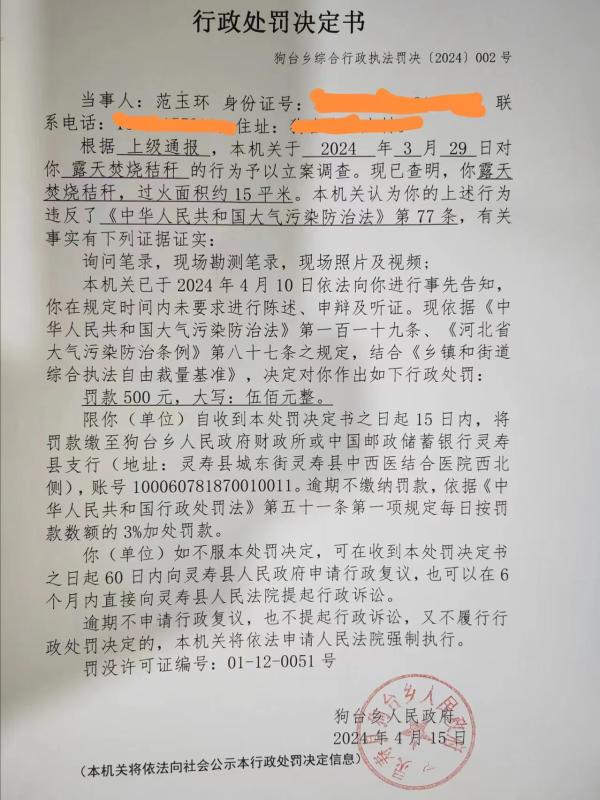 行政处罚决定书
狗台乡综合行政执法罚决〔2024〕002 号
当事人：范玉环 身份证号： 联
系电话： 住址：
根据 上级通报 ，本机关于 2024 年 3 月 29 日对
你 露天焚烧秸秆 的行为予以立案调查。现已查明，你露天
焚烧秸秆，过火面积约 15 平米。本机关认为你的上述行为
违反了《中华人民共和国大气污染防治法》第 77 条，有关
事实有下列证据证实：
询问笔录，现场勘测笔录，现场照片及视频；
本机关已于 2024 年 4 月 10 日依法向你进行事先告知，
你在规定时间内未要求进行陈述、申辩及听证。现依据《中
华人民共和国大气污染防治法》第一百一十九条、《河北省
大气污染防治条例》第八十七条之规定，结合《乡镇和街道
综合执法自由裁量基准》，决定对你作出如下行政处罚：
罚款 500 元，大写：伍佰元整。
限你（单位）自收到本处罚决定书之日起 15 日内，将
罚款缴至狗台乡人民政府财政所或中国邮政储蓄银行灵寿
县支行（地址：灵寿县城东街灵寿县中西医结合医院西北
侧），账号 100060781870010011。逾期不缴纳罚款，依据《中
华人民共和国行政处罚法》第五十一条第一项规定每日按罚
款数额的 3%加处罚款。
你（单位）如不服本处罚决定，可在收到本处罚决定书
之日起 60 日内向灵寿县人民政府申请行政复议，也可以在 6
个月内直接向灵寿县人民法院提起行政诉讼。
逾期不申请行政复议，也不提起行政诉讼，又不履行行
政处罚决定的，本机关将依法申请人民法院强制执行。
罚没许可证编号：01-12-0051 号
狗台乡人民政府
2024 年 4 月 15 日
（本机关将依法向社会公示本行政处罚决定信息）